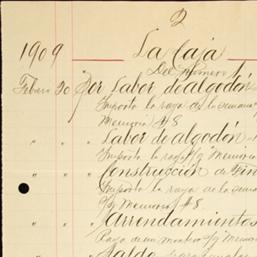 2
1909 La Caja
Del Número 1
Febrero 20 Por Labor de algodón
Importe la raya de la semana
Memoria #8
" " Labor de algodón
Importe la raya s/g Memoria
" " Construcción de
Importe la raya de la semana
s/g Memoria #8
" " Arrendamientos
Pago de un s/g Memoria
" " Saldo